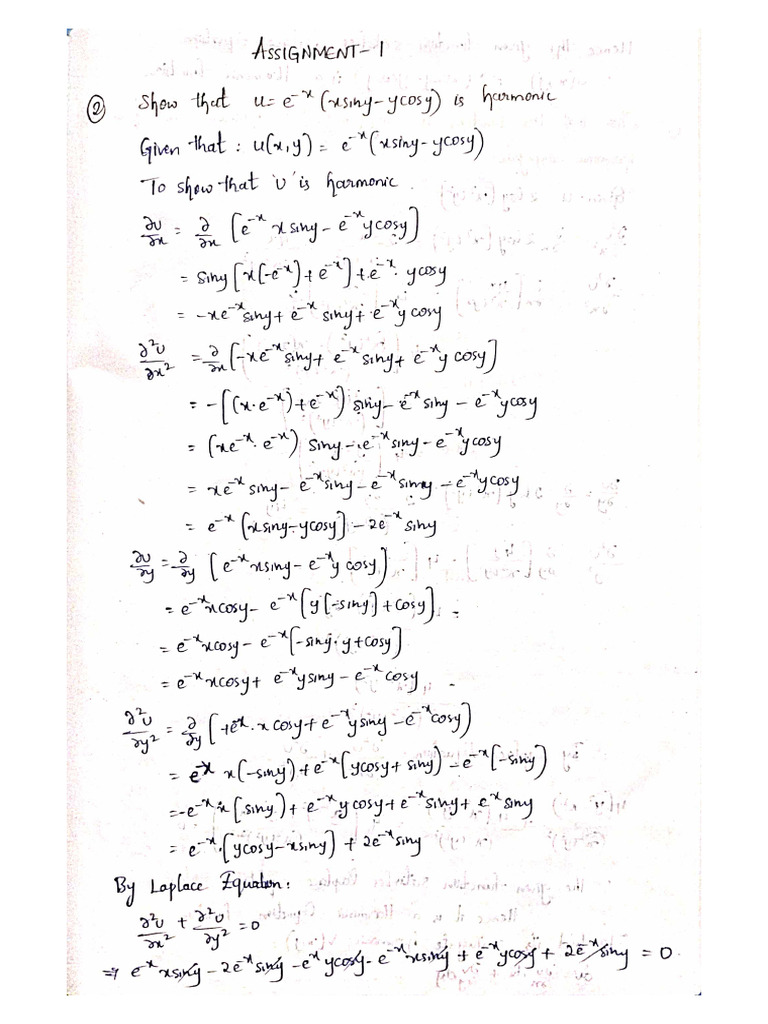 ASSIGNMENT-1
② Show that u= e^-x (xsiny-ycosy) is harmonic
Given that : u(x,y) = e^-x (xsiny-ycosy)
To show that 'u' is harmonic.
∂u/∂x = ∂/∂x [e^-x x siny - e^-x y cosy]
= siny [x(-e^-x) + e^-x] + e^-x · y cosy
= -xe^-x siny + e^-x siny + e^-x y cosy
∂²u/∂x² = ∂/∂x [-xe^-x siny + e^-x siny + e^-x y cosy]
= -[(x·-e^-x) + e^-x] siny - e^-x siny - e^-x y cosy
= (xe^-x · e^-x) siny - e^-x siny - e^-x y cosy
= xe^-x siny - e^-x siny - e^-x siny - e^-x y cosy
= e^-x [xsiny - ycosy] - 2e^-x siny
∂u/∂y = ∂/∂y [e^-x xsiny - e^-x y cosy]
= e^-x xcosy - e^-x [y[-siny] + cosy]
= e^-x xcosy - e^-x [-siny · y + cosy]
= e^-x xcosy + e^-x ysiny - e^-x cosy
∂²u/∂y² = ∂/∂y [+e^x · x cosy + e^-x ysiny - e^-x cosy]
= e^-x x(-siny) + e^-x [ycosy + siny] - e^-x [-siny]
= -e^-x x [siny] + e^-x y cosy + e^-x siny + e^x siny
= e^-x · [ycosy - xsiny] + 2e^-x siny
By Laplace Equation:
∂²u/∂x² + ∂²u/∂y² = 0
⇒ e^-x xsiny - 2e^-x siny - e^x ycosy - e^-x xsiny + e^-x ycosy + 2e^-x siny = 0